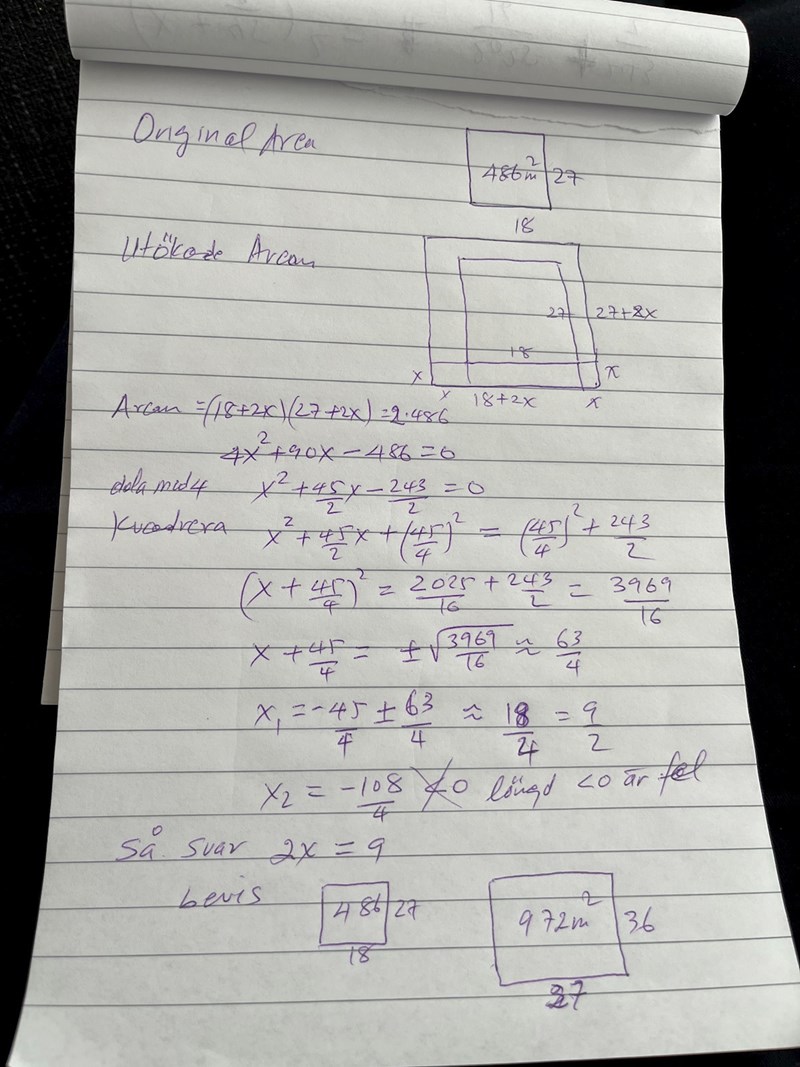 Original Area
486m² 27
18
Utökade Arean
27 27+2x
18
x x
x 18+2x x
Arean =(18+2x)(27+2x)=2·486
4x²+90x-486=0
dela med 4 x²+45/2x-243/2=0
Kvadrera x²+45/2x+(45/4)²=(45/4)²+243/2
(x+45/4)²=2025/16+243/2=3969/16
x+45/4=±√3969/16≈63/4
x₁=-45/4±63/4≈18/4=9/2
x₂=-108/4 <0 längd <0 är fel
Så svar 2x=9
bevis 486 27 972m² 36
18 27